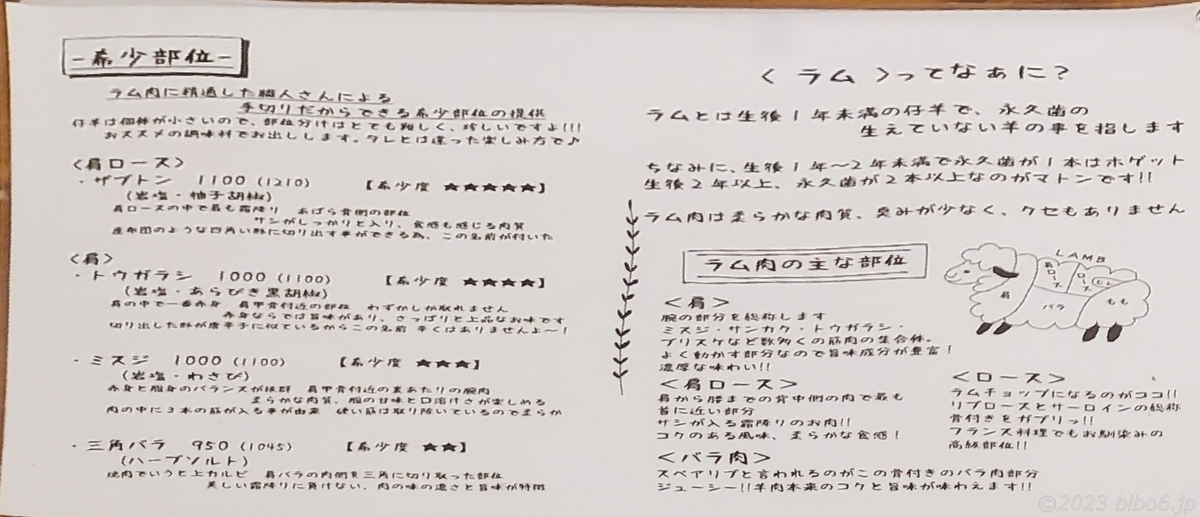 -希少部位-
ラム肉に精通した職人さんによる
手切りだからできる希少部位の提供
仔羊は個体が小さいので、部位分けはとても難しく、珍しいですよ!!!
おススメの調味料でお出しします。タレとは違った楽しみ方で♪
<肩ロース>
・ザブトン 1100 (1210) 【希少度 ★★★★★】
(岩塩・柚子胡椒)
肩ロースの中で最も霜降り あばら骨側の部位
サシがしっかりと入り、食感も感じる肉質
座布団のような四角い形に切り出す事ができる為、この名前が付いた
<肩>
・トウガラシ 1000 (1100) 【希少度 ★★★★】
(岩塩・あらびき黒胡椒)
肩の中で一番赤身 肩甲骨付近の部位 わずかしか取れません
赤身ならでは旨味があり、さっぱりと上品なお味です
切り出した形が唐辛子に似ているからこの名前 辛くはありませんよ~!
・ミスジ 1000 (1100) 【希少度 ★★★】
(岩塩・わさび)
赤身と脂身のバランスが抜群 肩甲骨付近の裏あたりの腕肉
柔らかな肉質、脂の甘味と口溶けさが楽しめる
肉の中に3本の筋が入る事が由来 硬い筋は取り除いているので柔らか
・三角バラ 950 (1045) 【希少度 ★★】
(ハーブソルト)
焼肉でいうと上カルビ 肩バラの内側を三角に切り取った部位
美しい霜降りに負けない、肉の味の濃さと旨味が特徴
<ラム>ってなぁに?
ラムとは生後1年未満の仔羊で、永久歯の
生えていない羊の事を指します
ちなみに、生後1年~2年未満で永久歯が1本はホゲット
生後2年以上、永久歯が2本以上なのがマトンです!!
ラム肉は柔らかな肉質、臭みが少なく、クセもありません
ラム肉の主な部位
LAMB
肩
肩ロース
ロース
ヒレ
バラ
もも
<肩>
腕の部分を総称します
ミスジ・サンカク・トウガラシ・
ブリスケなど数多くの筋肉の集合体。
よく動かす部分なので旨味成分が豊富!
濃厚な味わい!!
<肩ロース>
肩から腰までの背中側の肉で最も
首に近い部分
サシが入る霜降りのお肉!!
コクのある風味、柔らかな食感!
<ロース>
ラムチョップになるのがココ!!
リブロースとサーロインの総称
骨付きをガブリっ!!
フランス料理でもお馴染みの
高級部位!!
<バラ肉>
スペアリブと言われるのがこの骨付きのバラ肉部分
ジューシー!!羊肉本来のコクと旨味が味わえます!!
©2023 blbo6.jp